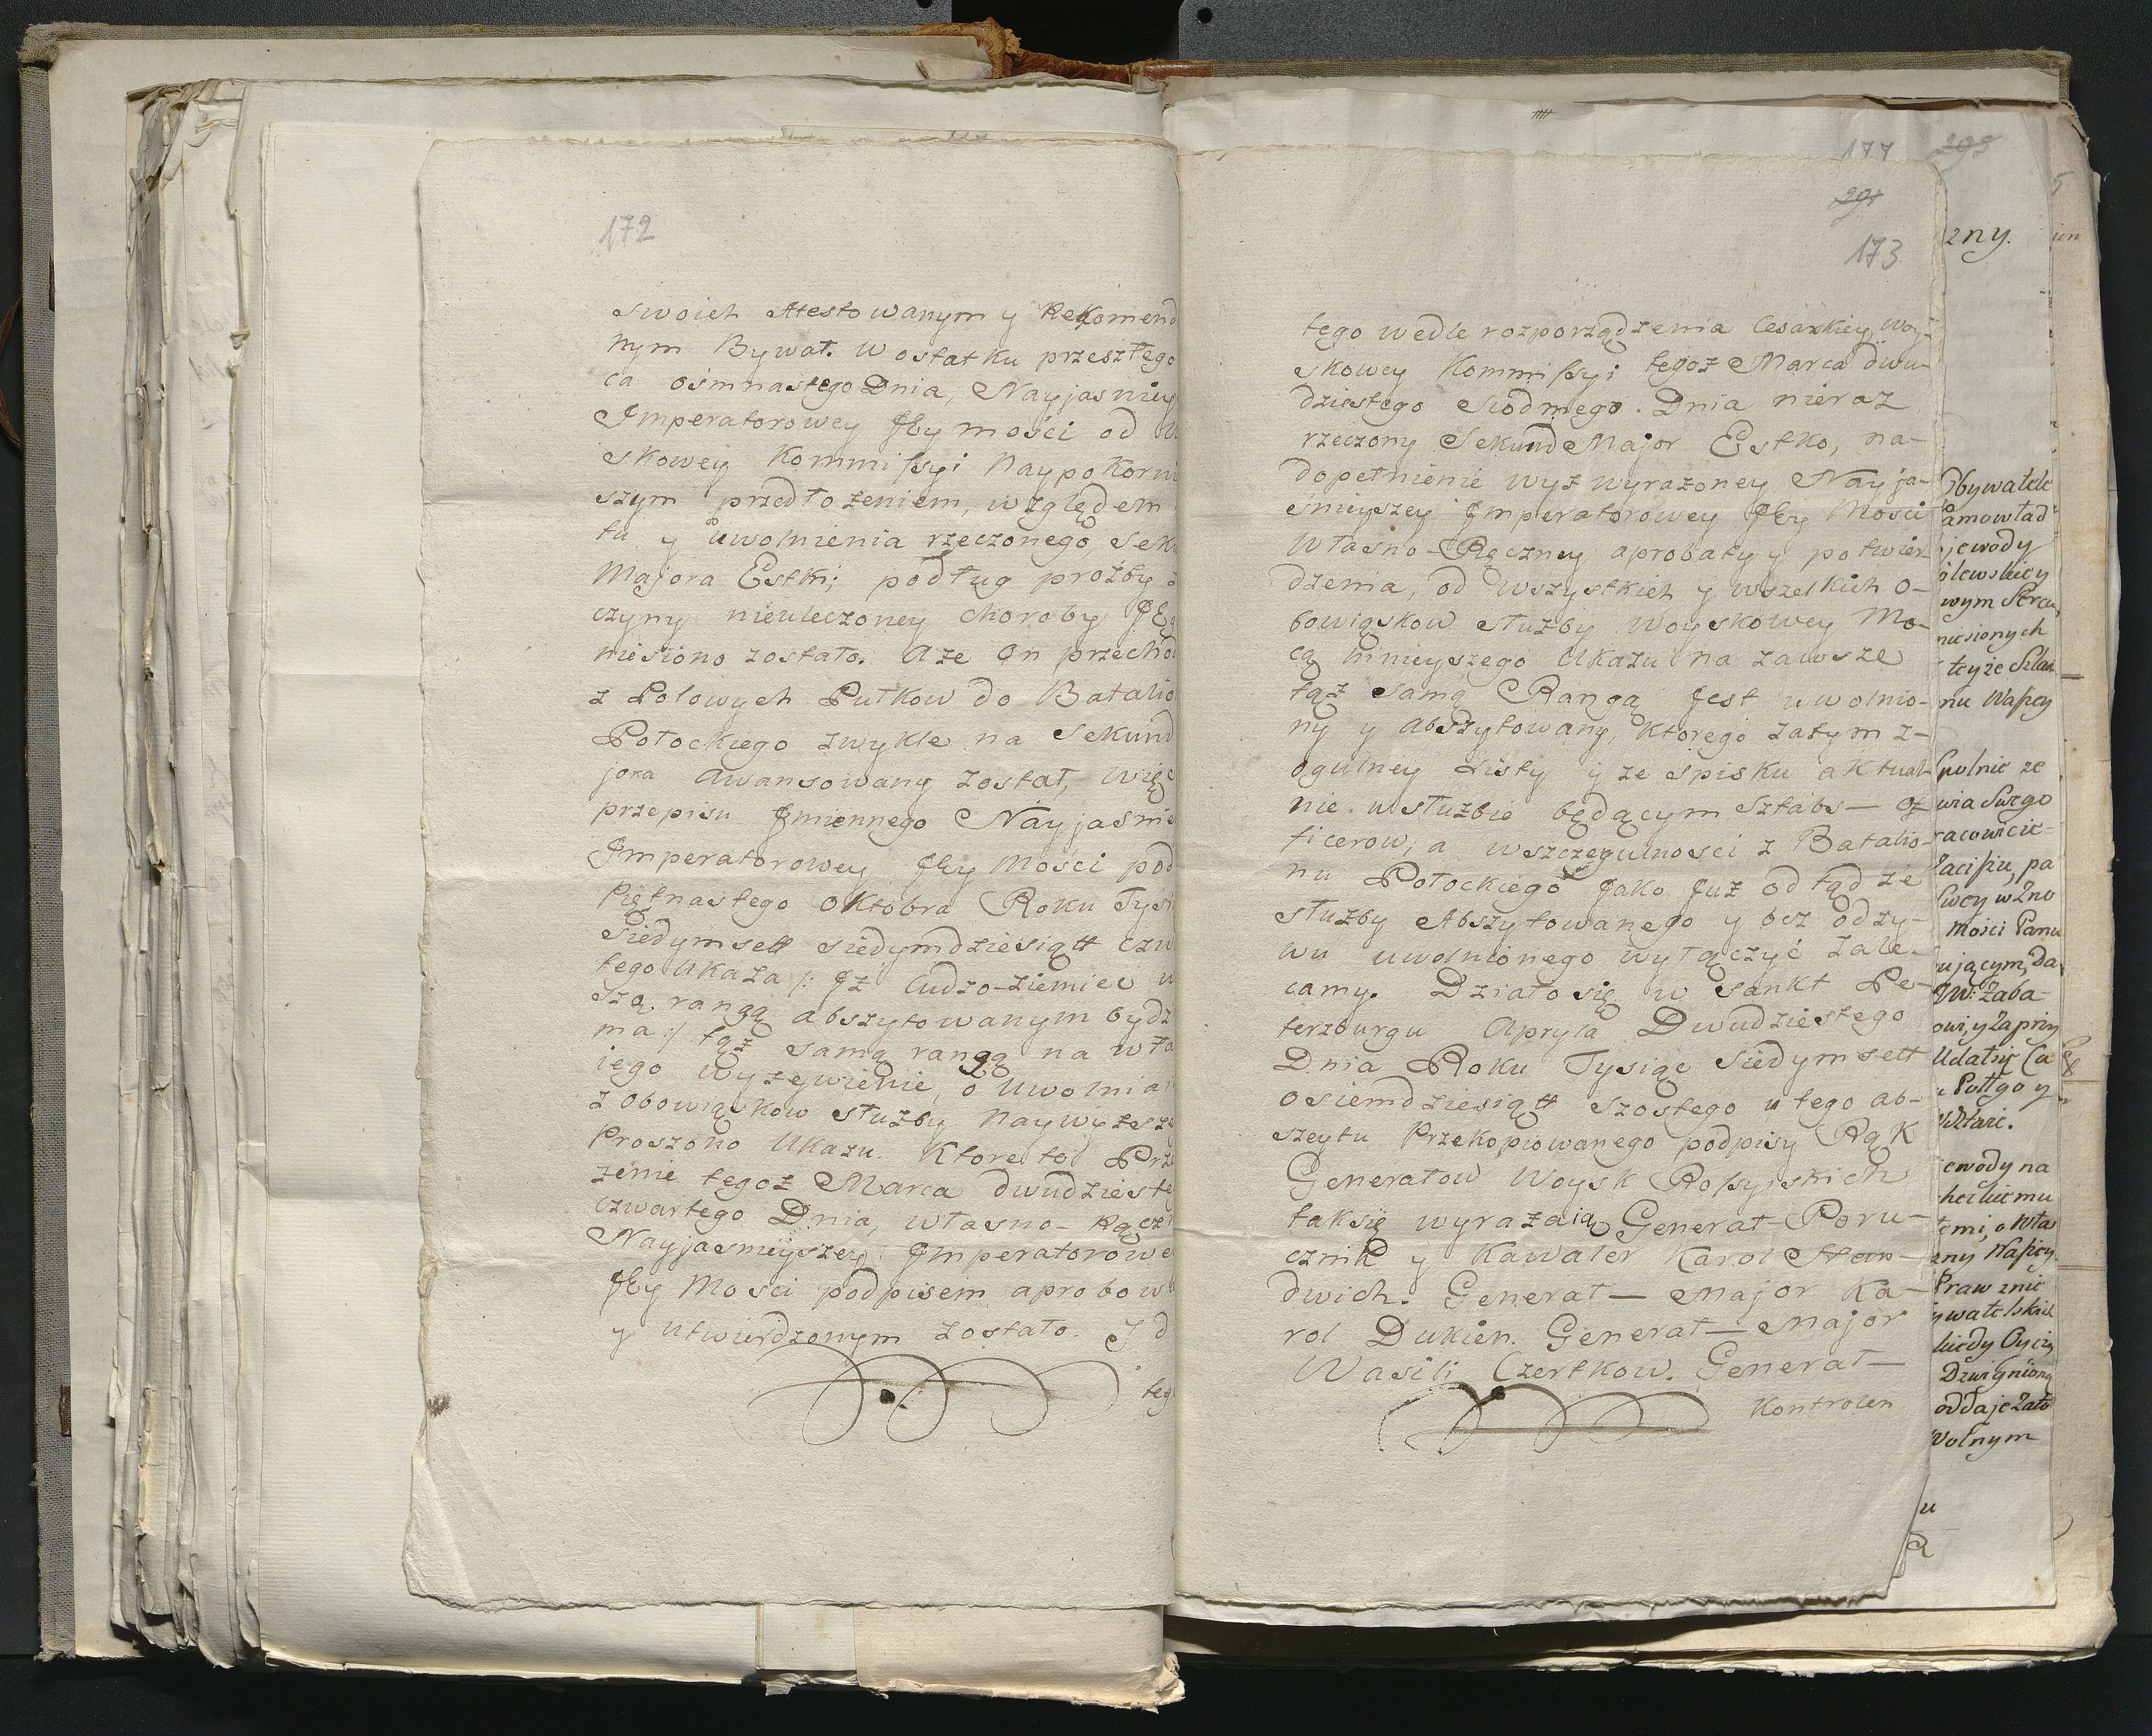 172
swoich Atestowanym y Rekomend
nym Bywał. w ostatku przeszłego
ca osmnastego Dnia, Nayjasniey
Imperatorowey JEy mości od W
skowey Kommissyi Naypokorni
szym przedłożeniem, względem
tu y uwolnienia rzeczonego, Seku
Majora Estki; podług prozby
czyny nieuleczoney choroby JEg
niesiono zostało. A ze On przechod
z Polowych Pułkow do Batalio
Potockiego zwykle na Sekund
jora Awansowany został, więc
przepisu Jmiennego Náyjasnie
Imperatorowey JEy Mości pod
Piętnastego Oktobra Roku Tysi
Siedymsett siedymdziesiątt czw
tego Ukaza /: Jż Cudzo-ziemiec w
szą rangą abszytowanym bydz
ma :/ tąż samą rangą na wła
iego wyzywienie, o Uwolnia
z obowiąskow służby Naywyższe
Proszono Ukazu. Ktore to Prze
żenie tegoż Marca dwudzieste
czwartego Dnia, własno-Ręczn
Nayjasnieyszey Imperatorowe
JEy Mosci podpisem aprobow
y utwierdzonym zostało. I d
teg
177
291
173
tego wedle rozporządzenia Cesarkiey Woy-
skowey Kommissyi tegoż Marca dwu-
dziestego siodmego. Dnia nieraz
rzeczony Sekund Major Estko, na-
dopełnienie wyż wyrazoney Nayja-
śnieyszey Imperatorowey JEy Mości
Własno-Ręczney aprobaty y potwier-
dzenia, od wszystkich y wszelkich o-
bowiąskow służby woyskowey Mo-
cą ninieyszego Ukazu na zawsze
tąż samą Rangą Jest uwolnio-
ny y Abszytowany, ktorego zatym z-
ogulney Listy y ze spisku aktual-
nie w służbie będącym Sztabs — Of
ficerow, a wszczegulnosci z Batalio-
nu Potockiego Jako Już odtąd ze
służby Abszytowanego y bez odzy-
wu uwolnionego wyłączyć zale-
camy. Działo się w Sankt Pe-
terzburgu Apryla Dwudziestego
Dnia Roku Tysiąc Siedymsett
osiemdziesiątt szostego u tego ab-
szeytu Przekopiowanego podpisy Rąk
Generałow Woysk Rossyiskich
tak się wyrazaią Generał-Poru-
cznik y Kawaler Karol Har-
dwich. Generał — Major Ka-
rol Dukien. Generał — Major
Wasili Czertkow. Generał —
Kontroler
293
5
zny.
Obywatele
amowład
jewody
olewskiey
wym Serca,
niesionych
teyże Szlach
nu Waszey
Spolnie ze
wia Swego
racowicie
Zacisiu, pa
Mości Panu
ującym, Da
JW: Zaba-
owi, y Zaprzy
Udatny Ca
u Potłgo y
ewody na
heckiemu
temi, o Wła
zny Waszey
Praw znie
ywatelskich
kiedy Oyczy
Dzwignioną
oddaje Zało
Wolnym
u